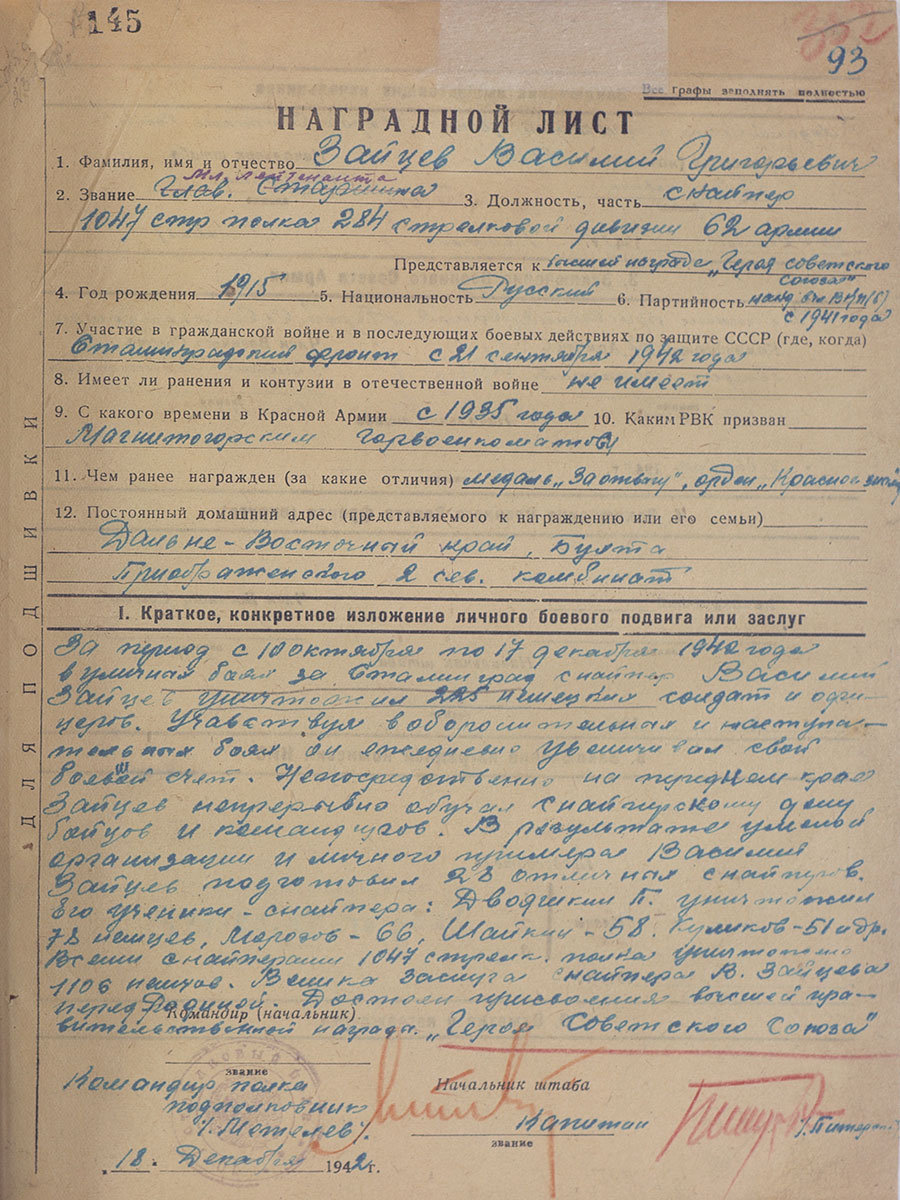 145
93
Все графы заполнять полностью
НАГРАДНОЙ ЛИСТ
1. Фамилия, имя и отчество Зайцев Василий Григорьевич
Мл. лейтенанта
2. Звание Глав. Старшина 3. Должность, часть снайпер
1047 стр полка 284 стрелковой дивизии 62 армии
Представляется к высшей награде „Героя Советского
Союза"
4. Год рождения 1915 5. Национальность Русский 6. Партийность канд. ВКП(б)
с 1941 года
7. Участие в гражданской войне и в последующих боевых действиях по защите СССР (где, когда)
Сталинградский фронт с 21 сентября 1942 года
8. Имеет ли ранения и контузии в отечественной войне не имеет
9. С какого времени в Красной Армии с 1935 года 10. Каким РВК призван
Магнитогорским горвоенкоматом
11. Чем ранее награжден (за какие отличия) медаль „За отвагу", орден „Красное
12. Постоянный домашний адрес (представляемого к награждению или его семьи)
Дальне-Восточный край, Бухта
Приображенского 2 сев. комбинат
ДЛЯ ПОДШИВКИ
I. Краткое, конкретное изложение личного боевого подвига или заслуг
За период с 10 октября по 17 декабря 1942 года
в уличных боях за Сталинград снайпер Василий
Зайцев уничтожил 225 немецких солдат и офи-
церов. Учавствуя в оборонительных и наступа-
тельных боях он ежедневно увеличивал свой
боевой счет. Непосредственно на переднем крае
Зайцев непрерывно обучал снайперскому делу
бойцов и командиров. В результате умелой
организации и личного примера Василий
Зайцев подготовил 28 отличных снайперов.
Его ученики - снайпера: Двояшкин П. уничтожил
78 немцев, Морозов - 66, Шайкин - 58. Куликов - 51 и др.
Всеми снайперами 1047 стрелк. полка уничтожено
1106 немцев. Велика заслуга снайпера В. Зайцева
перед Родиной. Достоин присвоения высшей пра-
Командир (начальник)
вительственной награды „Героя Советского Союза"
звание
Командир полка Начальник штаба
подполковник Капитан
/. Метелев/.
звание
18. Декабря 1942 г.